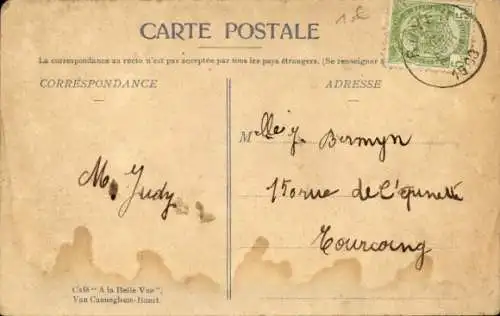 1.€
CARTE POSTALE
La correspondance au recto n'est pas acceptée par tous les pays étrangers. (Se renseigner à
CORRESPONDANCE
ADRESSE
Melle j. Bermyn
M. Judy
15 rue de l'épinette
Tourcoing
Café "A la Belle Vue",
Van Canneghem-Bonet.